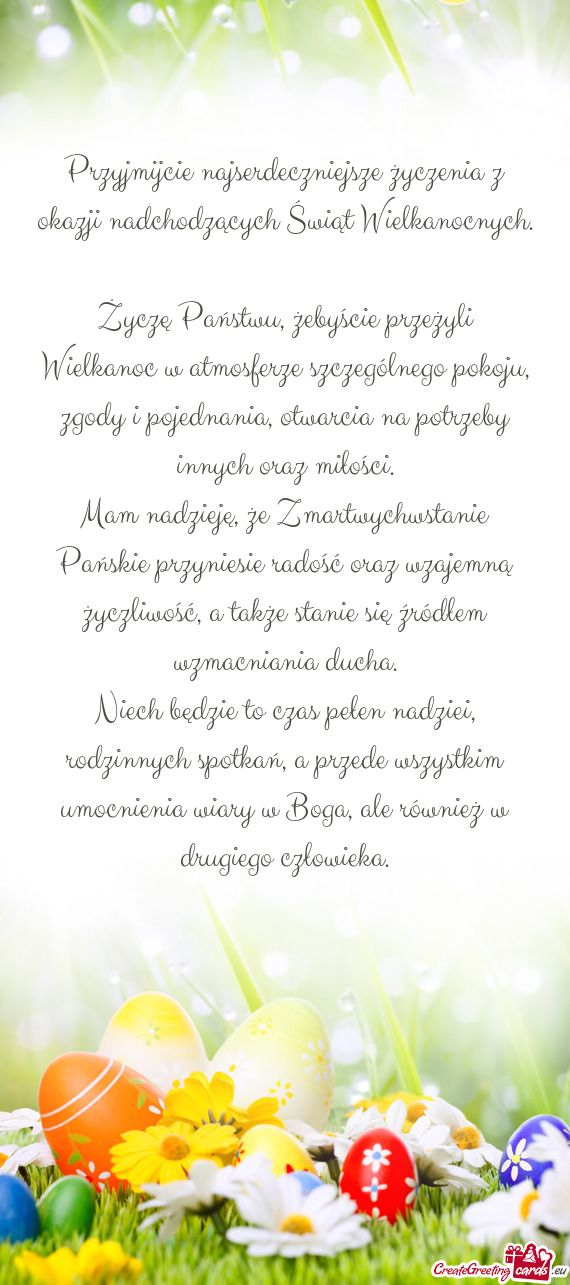 Przyjmijcie najserdeczniejsze życzenia z
okazji nadchodzących Świąt Wielkanocnych.
Życzę Państwu, żebyście przeżyli
Wielkanoc w atmosferze szczególnego pokoju,
zgody i pojednania, otwarcia na potrzeby
innych oraz miłości.
Mam nadzieję, że Zmartwychwstanie
Pańskie przyniesie radość oraz wzajemną
życzliwość, a także stanie się źródłem
wzmacniania ducha.
Niech będzie to czas pełen nadziei,
rodzinnych spotkań, a przede wszystkim
umocnienia wiary w Boga, ale również w
drugiego człowieka.
CreateGreeting cards .eu